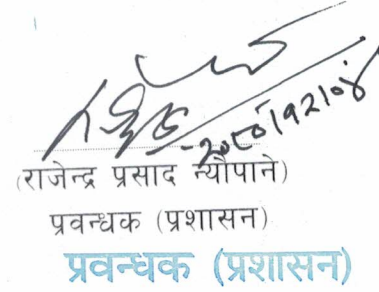 २०८०।१२।०४
(राजेन्द्र प्रसाद न्यौपाने)
प्रवन्धक (प्रशासन)
प्रवन्धक (प्रशासन)